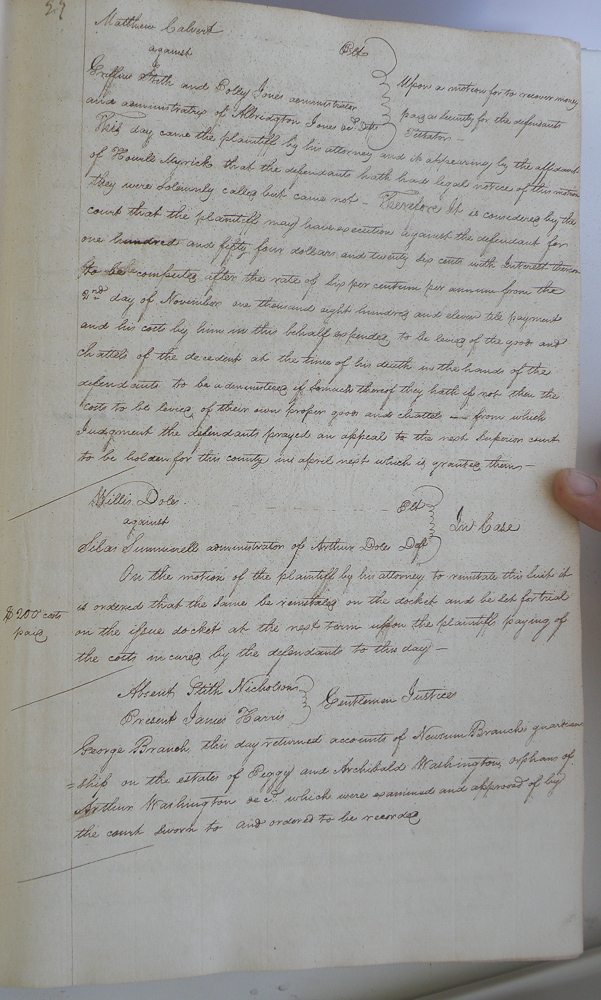 27
Matthew Calvert Plt
against
Griffin Stith and Polley Jones administrator
and administratrix of Albridgton Jones decd Defts
Upon a motion for to recover money
paid as security for the defendants
Intestator —
This day came the plaintiff by his attorney and it appearing by the affidavit
of Howell Myrick that the defendants hath had legal notice of this motion
they were solemnly called but came not — Therefore It is considered by the
court that the plaintiff may have execution against the defendant for
one hundred and fifty four dollars and twenty six cents with Interest thereon
to be computed after the rate of six per centum per annum from the
2nd day of November one thousand eight hundred and eleven till payment
and his costs by him in this behalf expended to be levied of the goods and
chattels of the decedent at the time of his death in the hands of the
defendants to be administered if so much thereof they hath if not then the
costs to be levied of their own proper goods and chattels — from which
Judgment the defendants prayed an appeal to the next Superior court
to be holden for this county in april next which is granted them —
Willis Doles Plt
against
Silas Summerell administrator of Arthur Doles Deft
In Case
On the motion of the plaintiff by his attorney to reinstate this suit it
is ordered that the same be reinstated on the docket and be set for trial
$200 costs
paid
on the issue docket at the next term upon the plaintiffs paying of
the costs incured by the defendants to this day —
Absent Stith Nicholson
Present James Harris
Gentlemen Justices
George Branch, this day returned accounts of Newsum Branchs guardian
=ship on the estates of Peggy and Archibald Washington, orphans of
Arthur Washington decd. which were examined and approved of by
the court sworn to and ordered to be recorded